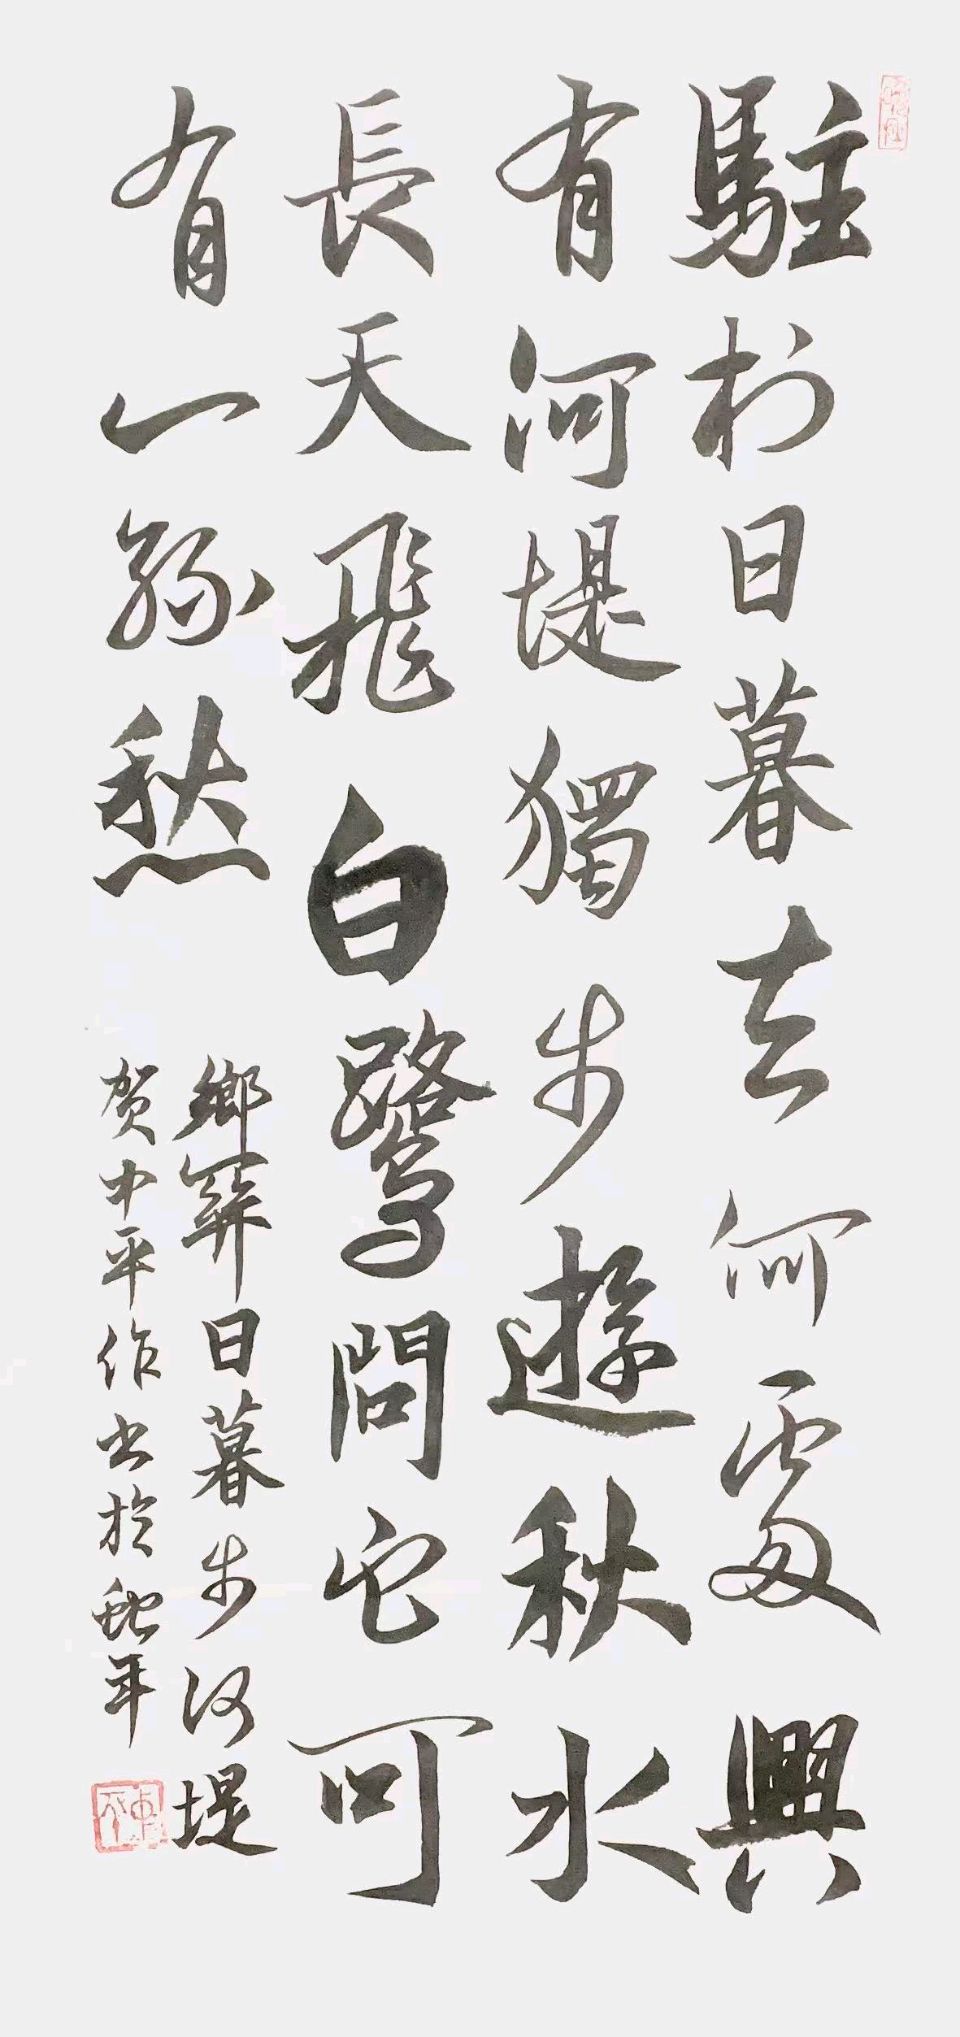 駐村日暮去何處興
有河堤獨步遊秋水
長天飛白鷺問它可
有一絲愁
鄉郊日暮步河堤
贺中平作书於蛇年